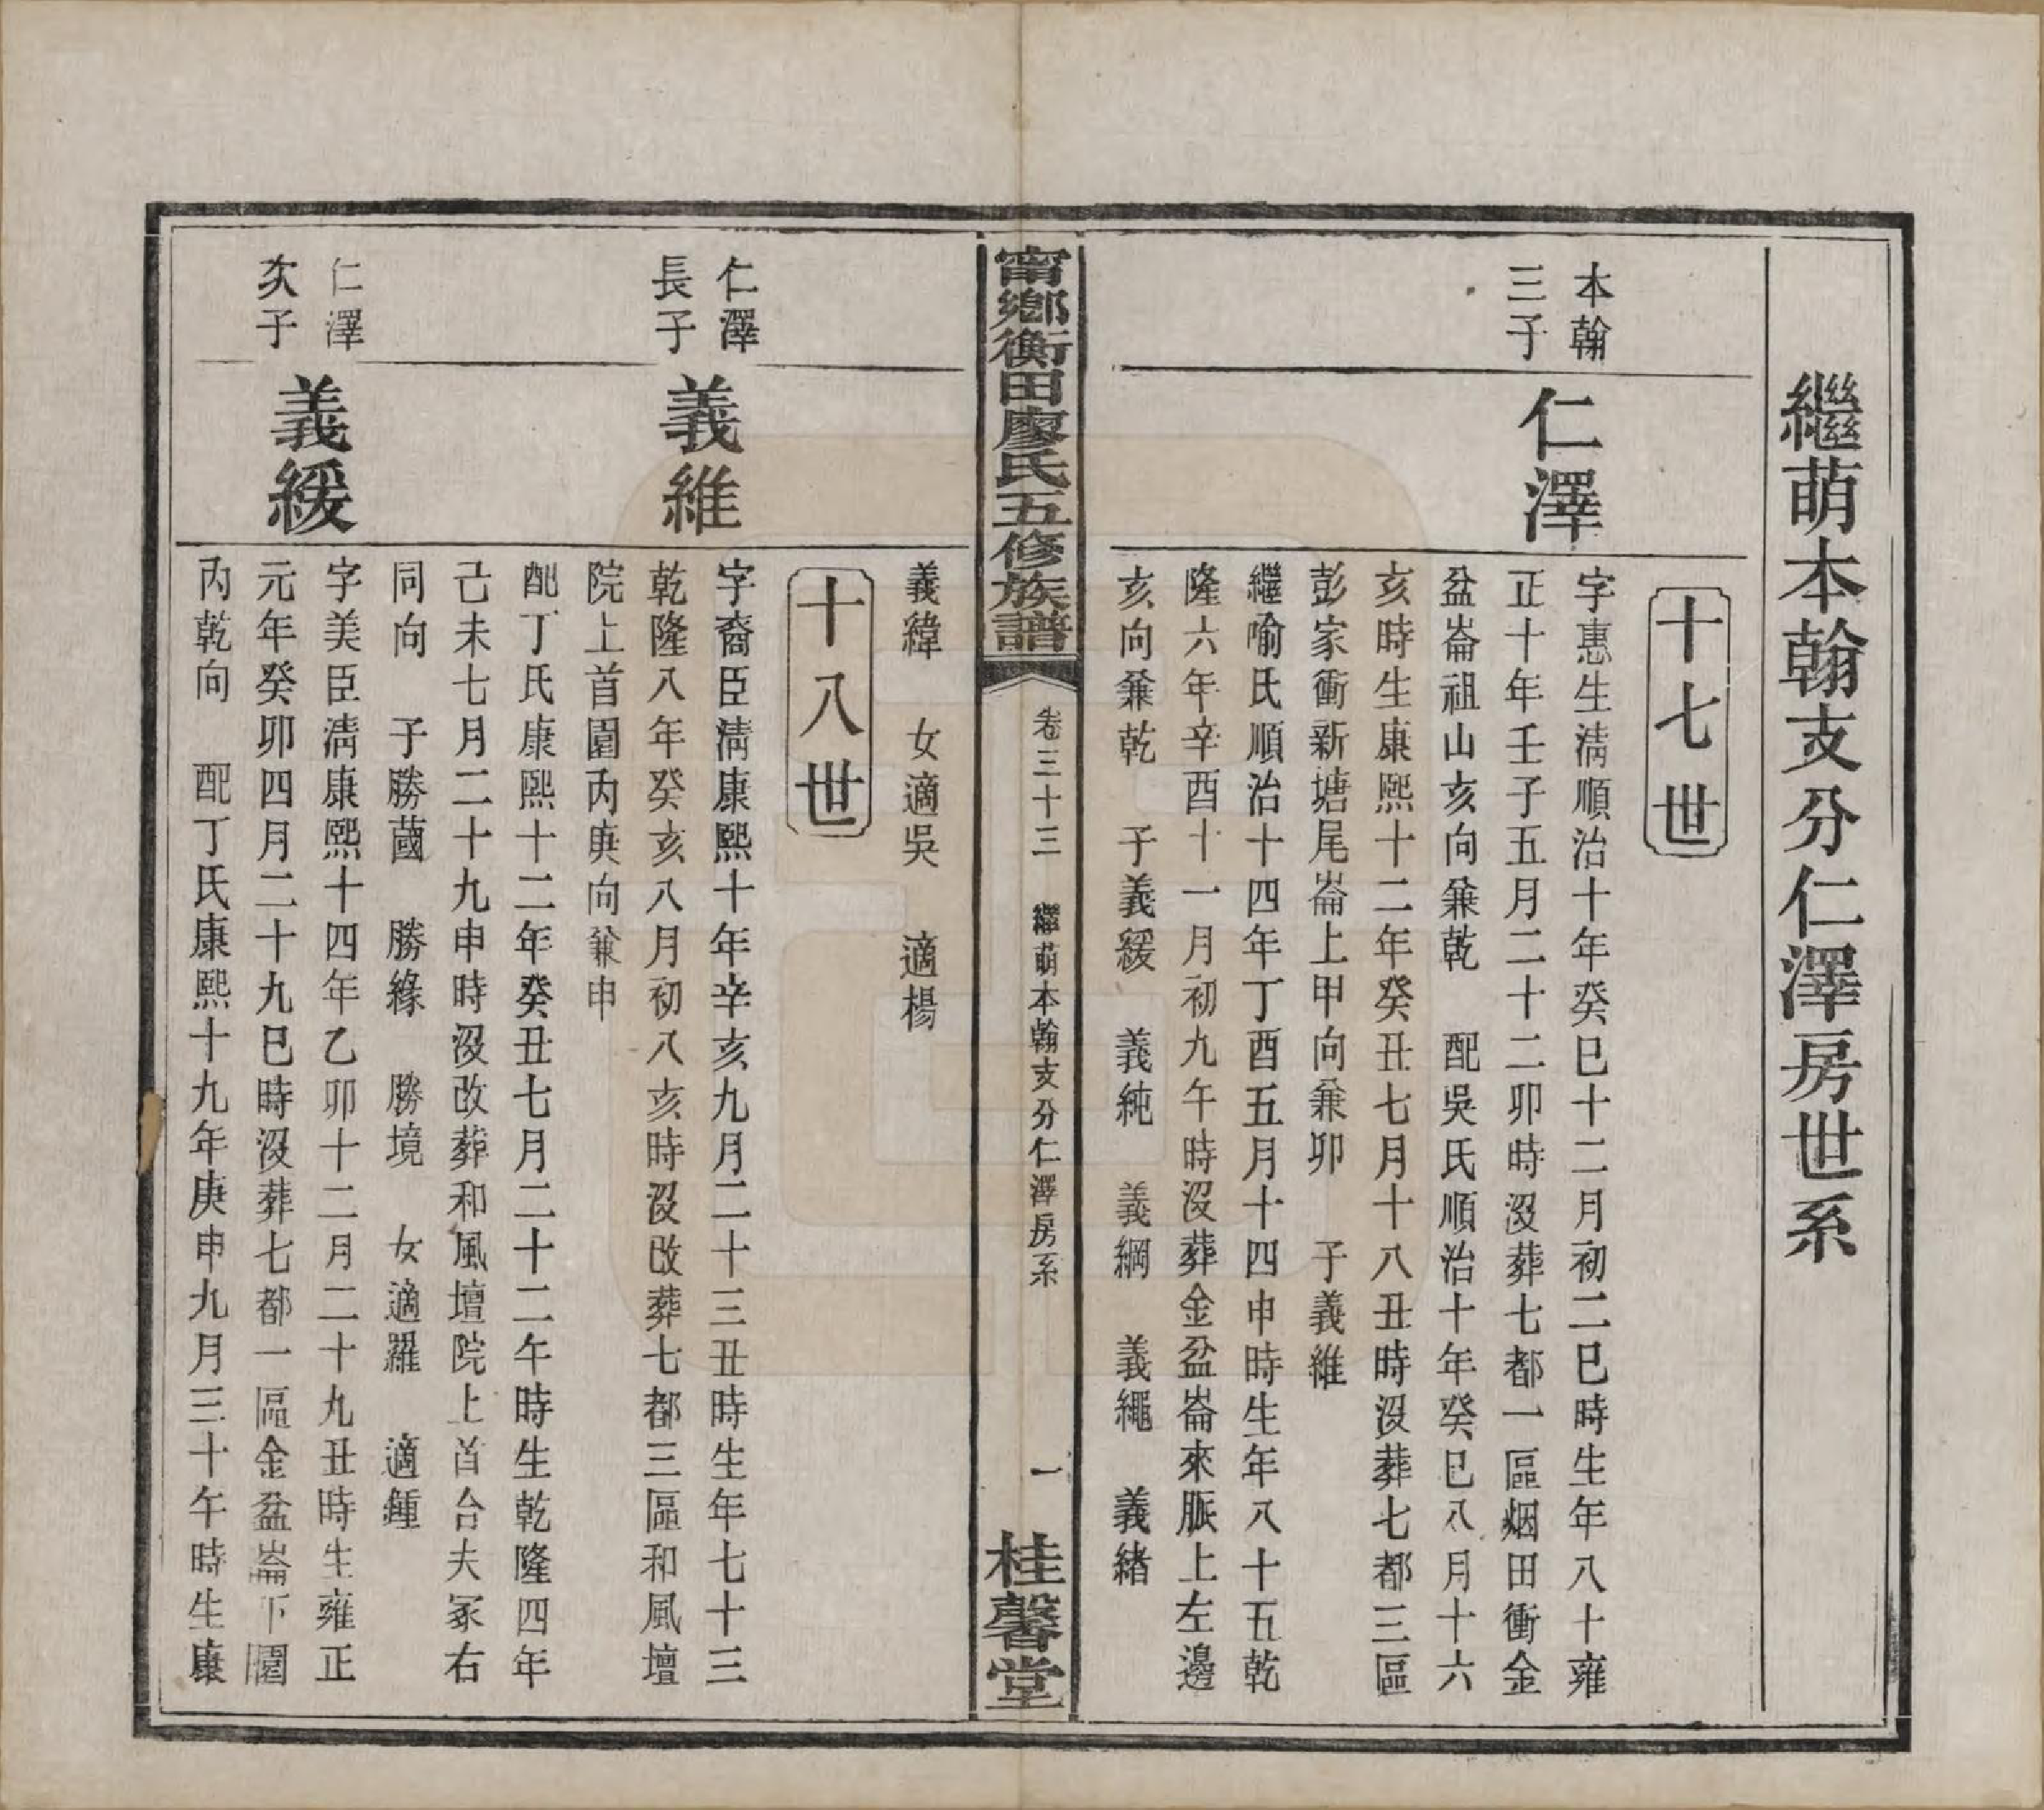 繼萌本翰支分仁澤房世系
十七世
本翰
三子
仁澤
字惠生淸順治十年癸巳十二月初二巳時生年八十雍
正十年壬子五月二十二卯時沒葬七都一區烟田衝金
盆崙祖山亥向兼乾　配吳氏順治十年癸巳八月十六
亥時生康熙十二年癸丑七月十八丑時沒葬七都三區
彭家衝新塘尾崙上甲向兼卯　子義維
繼喻氏順治十四年丁酉五月十四申時生年八十五乾
隆六年辛酉十一月初九午時沒葬金盆崙來脈上左邊
亥向兼乾　子義緩　義純　義綱　義繩　義緒
甯鄉衡田廖氏五修族譜
卷三十三　繼萌本翰支分仁澤房系
一
桂馨堂
義緯　女適吳　適楊
十八世
仁澤
長子
義維
字裔臣淸康熙十年辛亥九月二十三丑時生年七十三
乾隆八年癸亥八月初八亥時沒改葬七都三區和風壇
院上首園丙庚向兼申
配丁氏康熙十二年癸丑七月二十二午時生乾隆四年
己未七月二十九申時沒改葬和風壇院上首合夫冢右
同向　子勝蘭　勝緣　勝境　女適羅　適鍾
仁澤
次子
義緩
字美臣淸康熙十四年乙卯十二月二十九丑時生雍正
元年癸卯四月二十九巳時沒葬七都一區金盆崙下園
丙乾向　配丁氏康熙十九年庚申九月三十午時生康